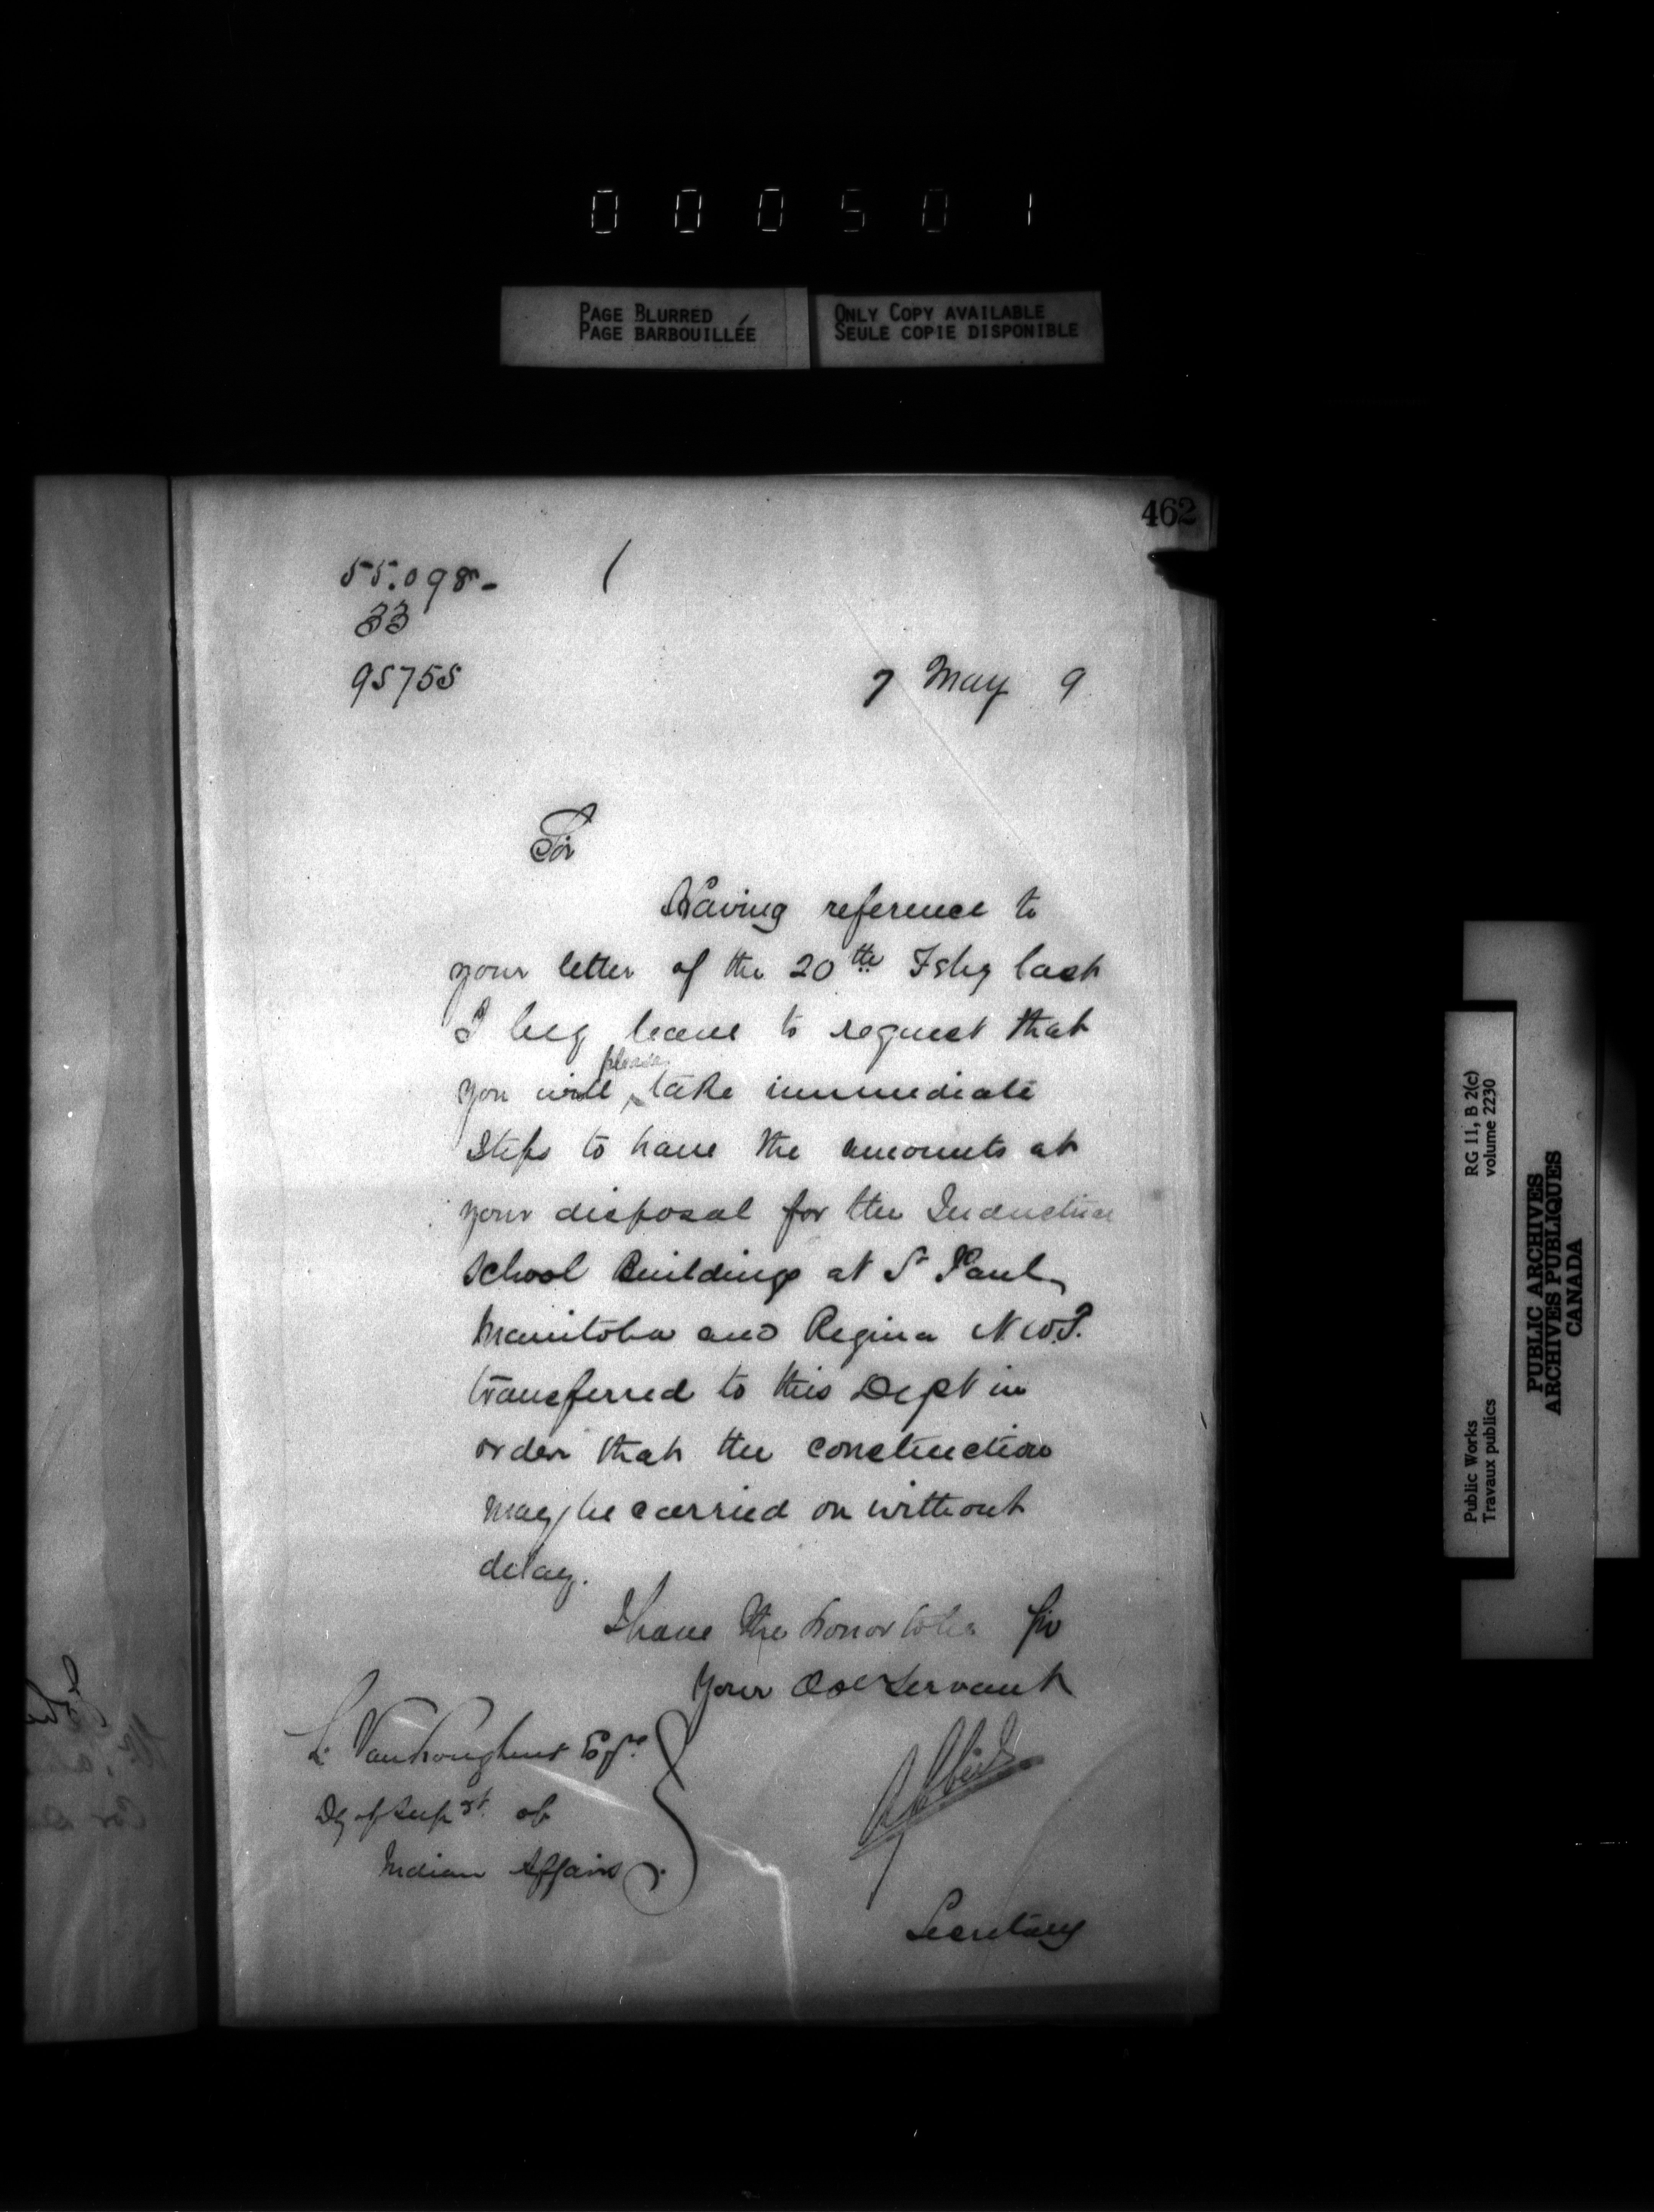 000501
PAGE BLURRED
PAGE BARBOUILLÉE
ONLY COPY AVAILABLE
SEULE COPIE DISPONIBLE
462
55.098-
33
95755
7 May 9
Sir
Having reference to
your letter of the 20th Feby last
I beg leave to request that
you will please take immediate
steps to have the amounts at
your disposal for the
School Buildings at St Paul
Manitoba and Regina N.W.T.
transferred to this Dept in
order that the construction
may be carried on without
delay.
I have the honor to be Sir
Your Obt Servant
L. Vankoughnet Esqre
Dy of Supt of
Indian Affairs
Secretary
RG 11, B 2(c)
volume 2230
Public Works
Travaux publics
PUBLIC ARCHIVES
ARCHIVES PUBLIQUES
CANADA